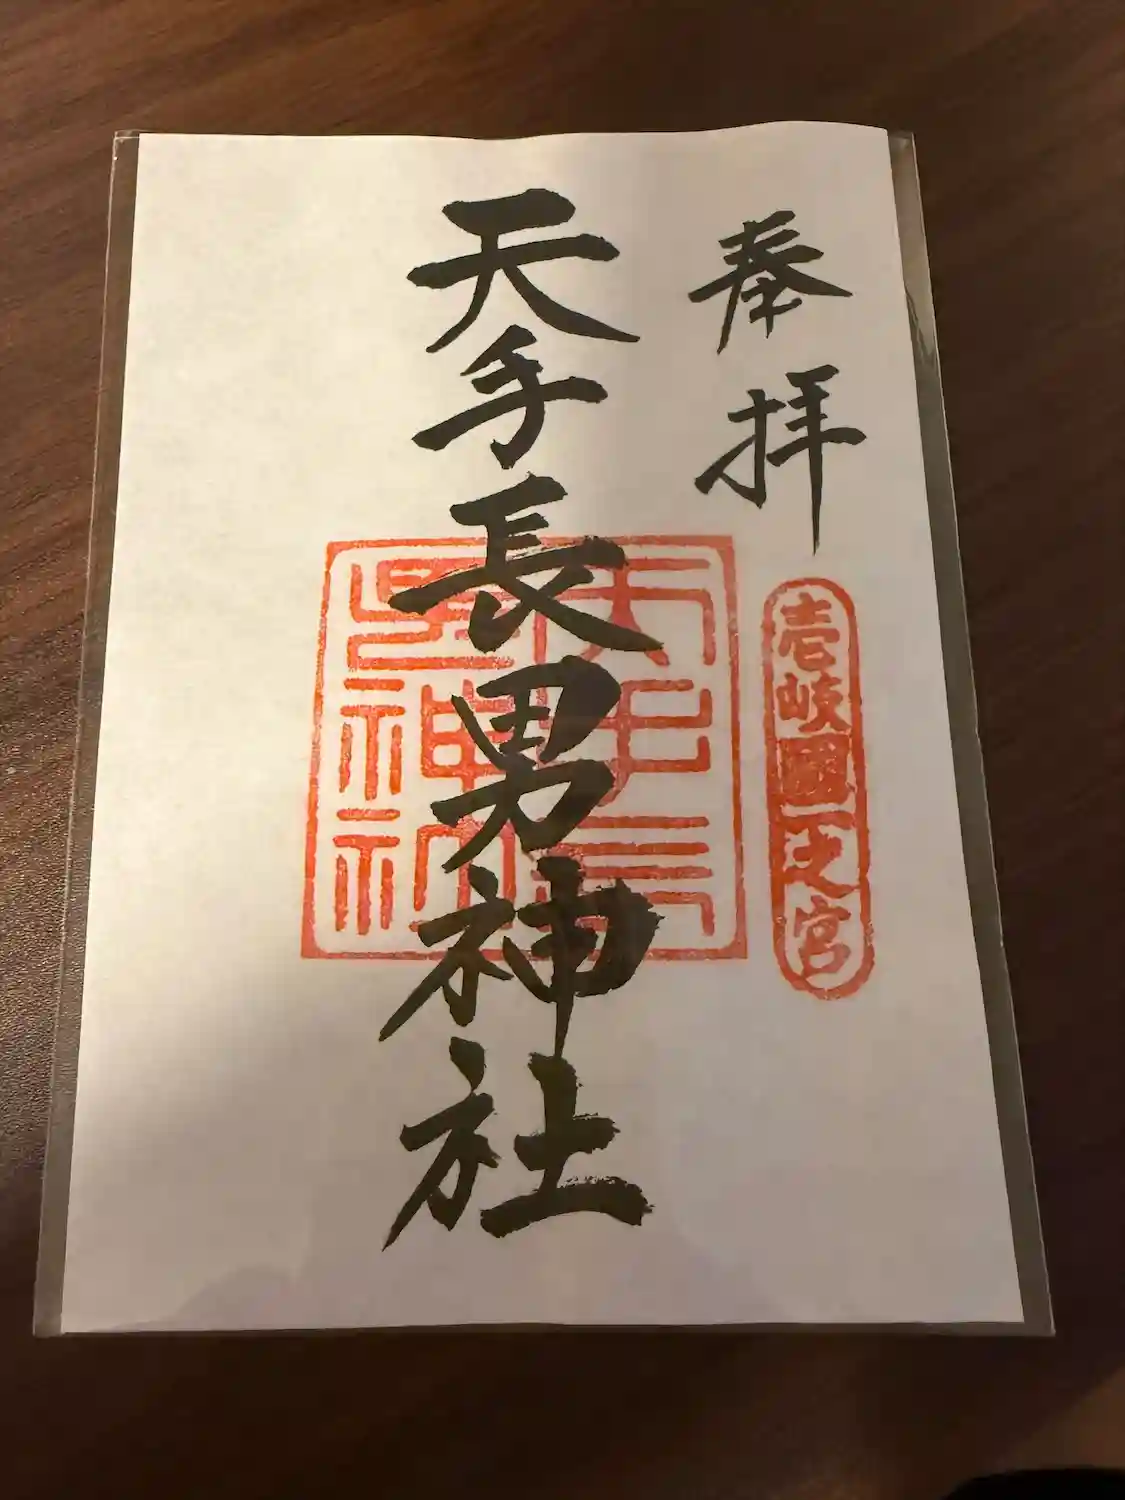 奉拝
壱岐國一之宮
天手長男神社
天手長
男神社